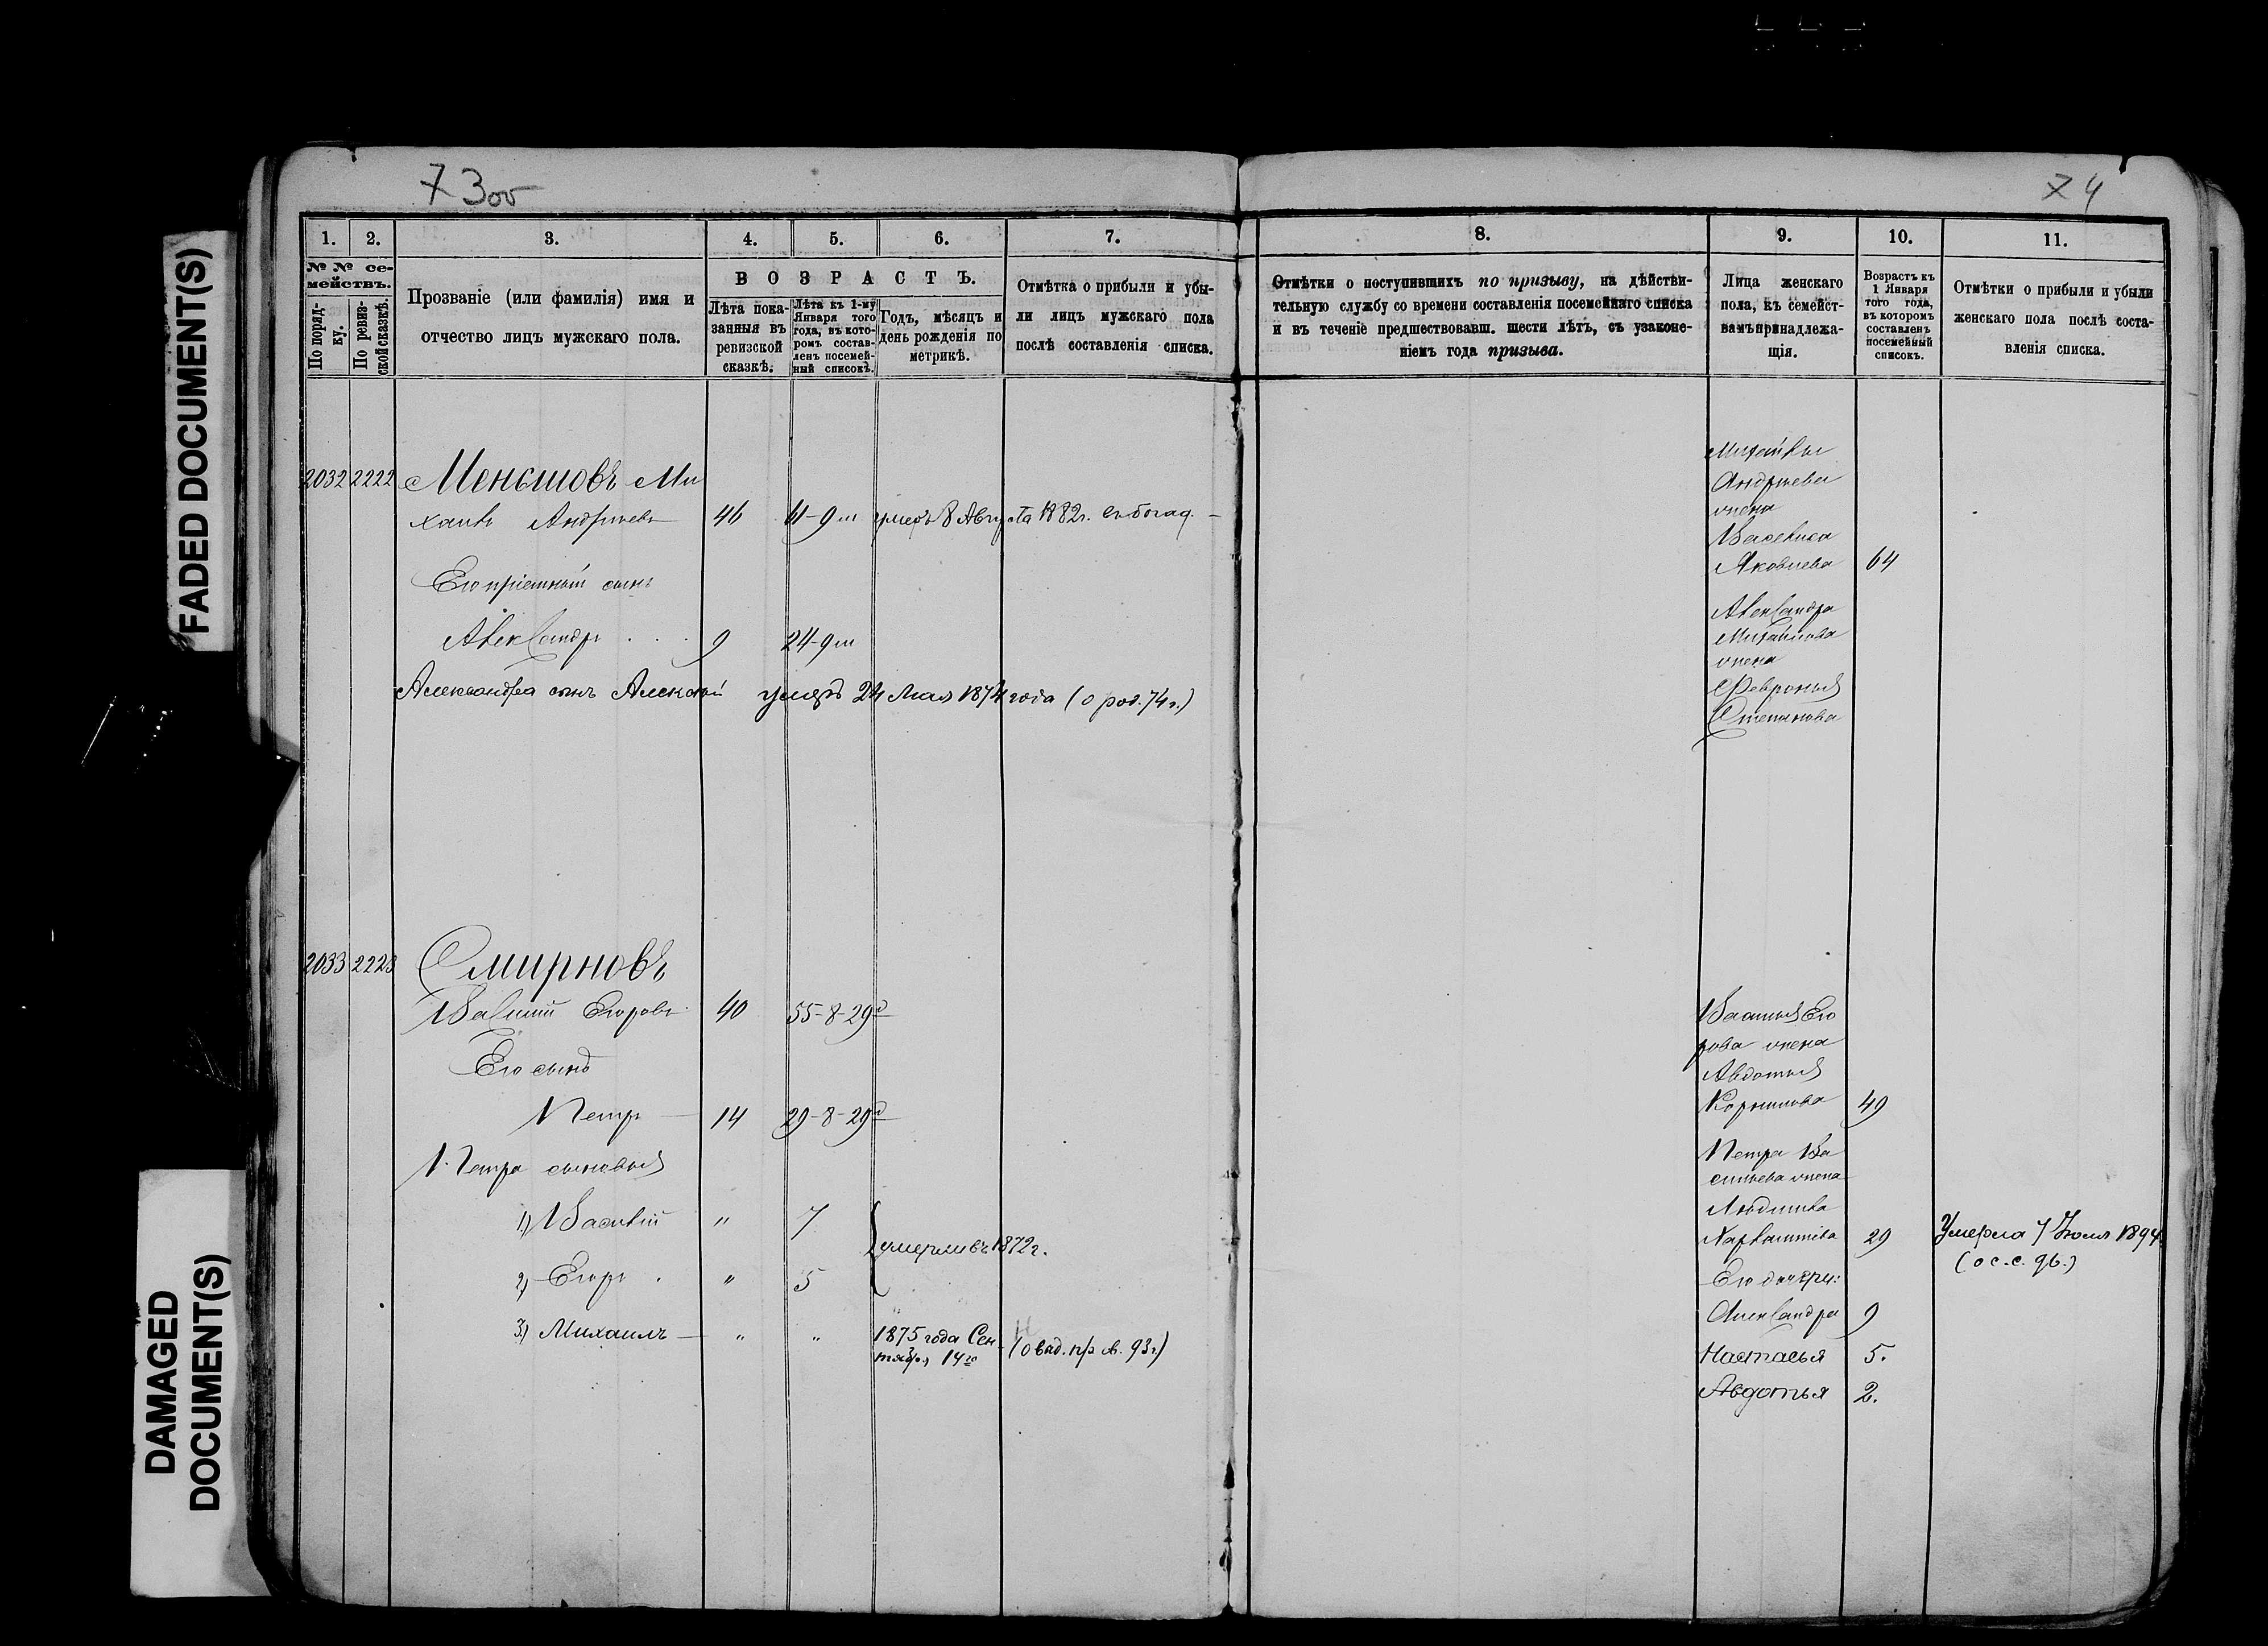 FADED DOCUMENT(S)
DAMAGED
DOCUMENT(S)
73об
74
1.
2.
3.
4.
5.
6.
7.
№ № се-
мействъ.
По поряд-
ку.
По ревиз-
ской сказкѣ.
Прозваніе (или фамилія) имя и
отчество лицъ мужскаго пола.
ВОЗРАСТЪ.
Лѣта пока-
занныя въ
ревизской
сказкѣ.
Лѣта къ 1-му
Января того
года, въ кото-
ромъ состав-
ленъ посемей-
ный списокъ.
Годъ, мѣсяцъ и
день рожденія по
метрикѣ.
Отмѣтка о прибыли и убы-
ли лицъ мужскаго пола
послѣ составленія списка.
2032 2222 Меньшовъ Ми
хаилъ Андреевъ 46 61-9 м умеръ 8 Августа 1882г.
Его пріемный сынъ
Александръ 9 24-9 м
Александра сынъ Алексѣй умеръ 24 Мая 1874 года (о род. 74 г.)
2033 2223 Смирновъ
Василій Егоровъ 40 55-8-29д
Его сынъ
Петръ 14 29-8-29д
Петра сыновья
1) Василій " 7
умерли въ 1872 г.
2) Егоръ " 5
3) Михаилъ " " 1875 года Сен-
тября 14го
8.
9.
10.
11.
Отмѣтки о поступившихъ по призыву, на дѣйстви-
тельную службу со времени составленія посемейнаго списка
и въ теченіе предшествовавш. шести лѣтъ, съ узаконе-
ніемъ года призыва.
Лица женскаго
пола, къ семейст-
вамъ принадлежа-
щія.
Возрастъ къ
1 Января
того года,
въ которомъ
составленъ
посемейный
списокъ.
Отмѣтки о прибыли и убыли
женскаго пола послѣ соста-
вленія списка.
Михайлы
Андреева
жена
Василиса
Яковлева 64
Александра
Михайлова
жена
Февронья
Степанова
Василья Его
рова жена
Авдотья
Корнилова 49
Петра Ва
сильева жена
Харлампіева 29 Умерла 7 Іюля 1894
Его дочери:
Александра 9
Настасья 5.
Авдотья 2.